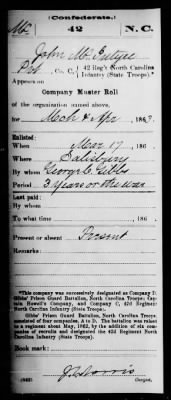 (Confederate.)
Mc 42 N.C.
John McIntyre
Pvt, Co. C, 42 Reg't North Carolina
Infantry (State Troops).*
Appears on
Company Muster Roll
of the organization named above,
for Mch & Apr, 186
Enlisted:
When Mar 17, 186
Where Salisbury
By whom George C. Gibbs
Period 3 years or the war
Last paid:
By whom
To what time , 186
Present or absent Present
Remarks:
*This company was successively designated as Company
Gibbs' Prison Guard Battalion, North Carolina Troops; Cap-
tain Howell's Company, and Company C, 42d Regiment
North Carolina Infantry (State Troops).
Gibbs' Prison Guard Battalion, North Carolina Troops,
consisted of four companies, A to D. The battalion was raised
to a regiment about May, 1862, by the addition of six com-
panies of recruits and designated the 42d Regiment North
Carolina Infantry (State Troops).
Book mark:
(642)
Copyist.